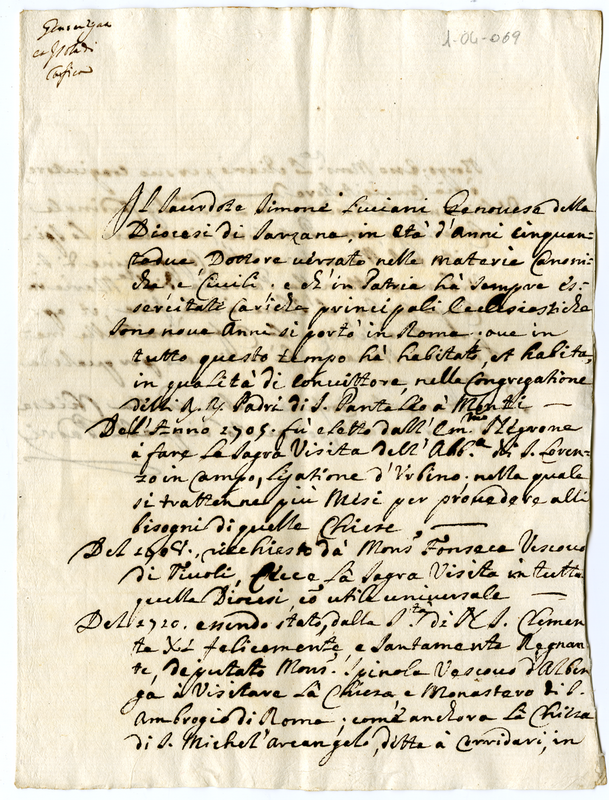 1-06-069
Genovezan
Corsica
Il Sacerdote Simone Luciani Genovese della
Diocesi di Sarzana, in età d'Anni cinquan-
tadue, Dottore versato nelle materie Canoni-
che, e Civili. e ch'in Patria hà sempre es-
sercitate Cariche principali Ecclesiastiche
sono nove Anni si portò in Roma; ove in
tutto questo tempo hà habitato, et habita,
in qualità di convittore, nella Congregatione
delli R. R. Padri di S. Pantaleo à Monti —
Dell'Anno 1705. fù eletto dall'Em.mo Negrone
à fare la Sagra Visita dell'Abb.a di S. Loren-
zo in campo, Legatione d'Urbino. nella quale
si trattenne più Mesi per provedere alli
bisogni di quelle Chiese —
Del 1708., richiesto dà Mons.r Fonseca Vescovo
di Tivoli, fece la Sagra Visita in tutta
quella Diocesi, cò utile universale —
Del 1710. essendo stato, dalla S.tà di N. S. Clemen-
te XI felicemente, e Santamente Regnan-
te, deputato Mons.r Spinola Vescovo d'Alben-
ga à Visitare la Chiesa e Monastero di S.
Ambrogio di Roma; com'anchora la Chiesa
di S. Michel'Arcangelo, detta à Corridari, in